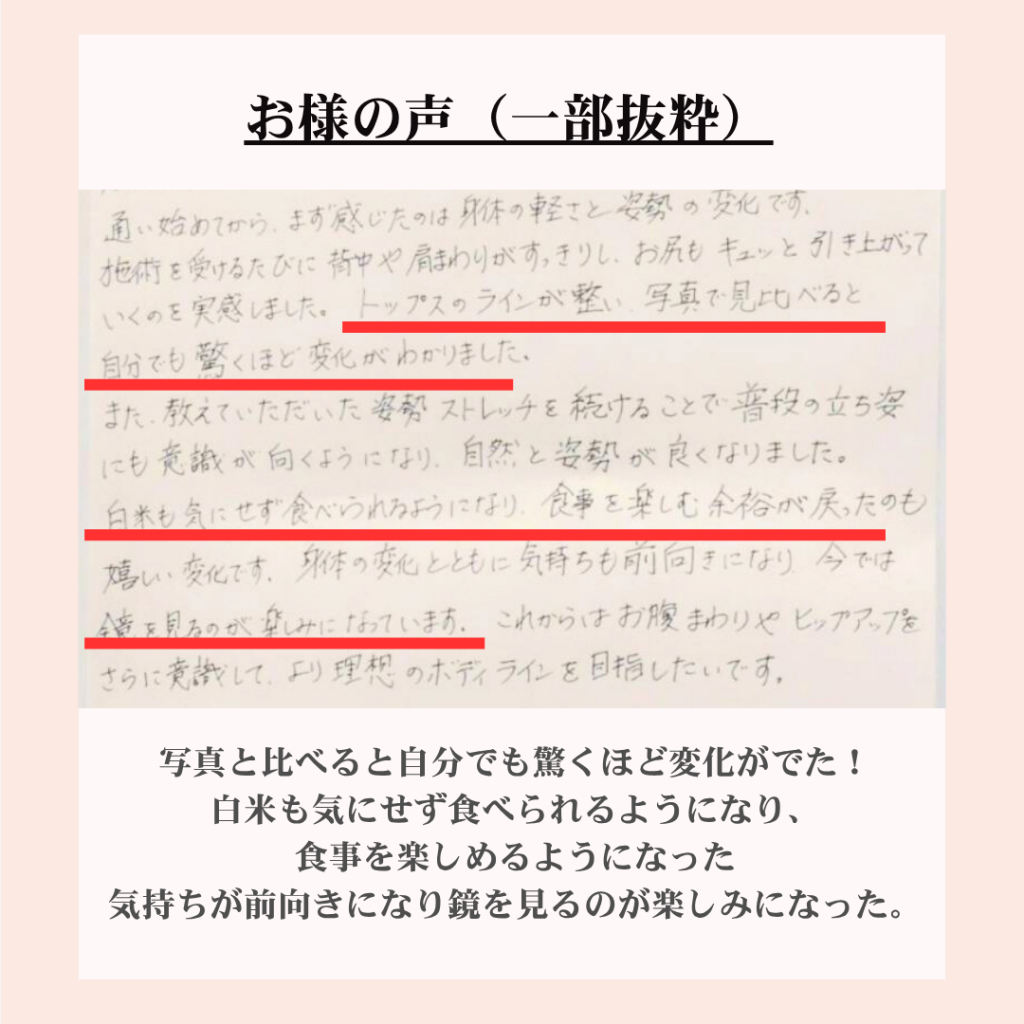 お様の声（一部抜粋）
通い始めてから、まず感じたのは身体の軽さと姿勢の変化です、
施術を受けるたびに背中や肩まわりがすっきりし、お尻もキュッと引き上がって
いくのを実感しました。トップスのラインが整い、写真で見比べると
自分でも驚くほど変化がわかりました。
また、教えていただいた姿勢ストレッチを続けることで普段の立ち姿
にも意識が向くようになり、自然と姿勢が良くなりました。
白米も気にせず食べられるようになり、食事を楽しむ余裕が戻ったのも
嬉しい変化です、身体の変化とともに気持ちも前向きになり、今では
鏡を見るのが楽しみになっています、これからはお腹まわりやヒップアップを
さらに意識して、より理想のボディラインを目指したいです。
写真と比べると自分でも驚くほど変化がでた！
白米も気にせず食べられるようになり、
食事を楽しめるようになった
気持ちが前向きになり鏡を見るのが楽しみになった。